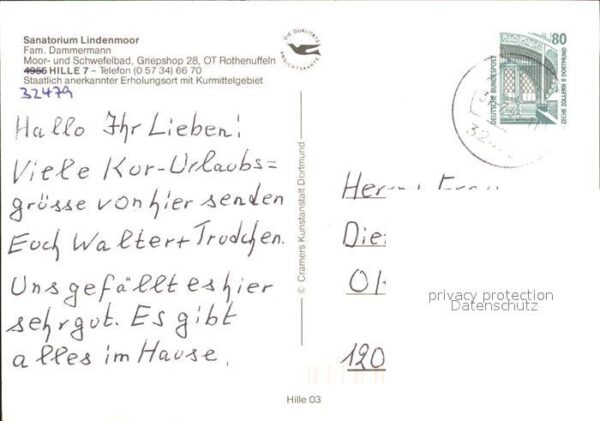 Sanatorium Lindenmoor
Fam. Dammermann
Moor- und Schwefelbad, Griepshop 28, OT Rothenuffeln
4955 HILLE 7 – Telefon (0 57 34) 66 70
Staatlich anerkannter Erholungsort mit Kurmittelgebiet
32479
Hallo Ihr Lieben!
Viele Kur-Urlaubs=
grüsse von hier senden
Euch Walter + Trudchen.
Uns gefällt es hier
sehr gut. Es gibt
alles im Hause.
DIE QUALITÄTS
ANSICHTSKARTE
© Cramers Kunstanstalt Dortmund
Hille 03
80
DEUTSCHE BUNDESPOST
ZECHE ZOLLERN II DORTMUND
Die
120
privacy protection
Datenschutz